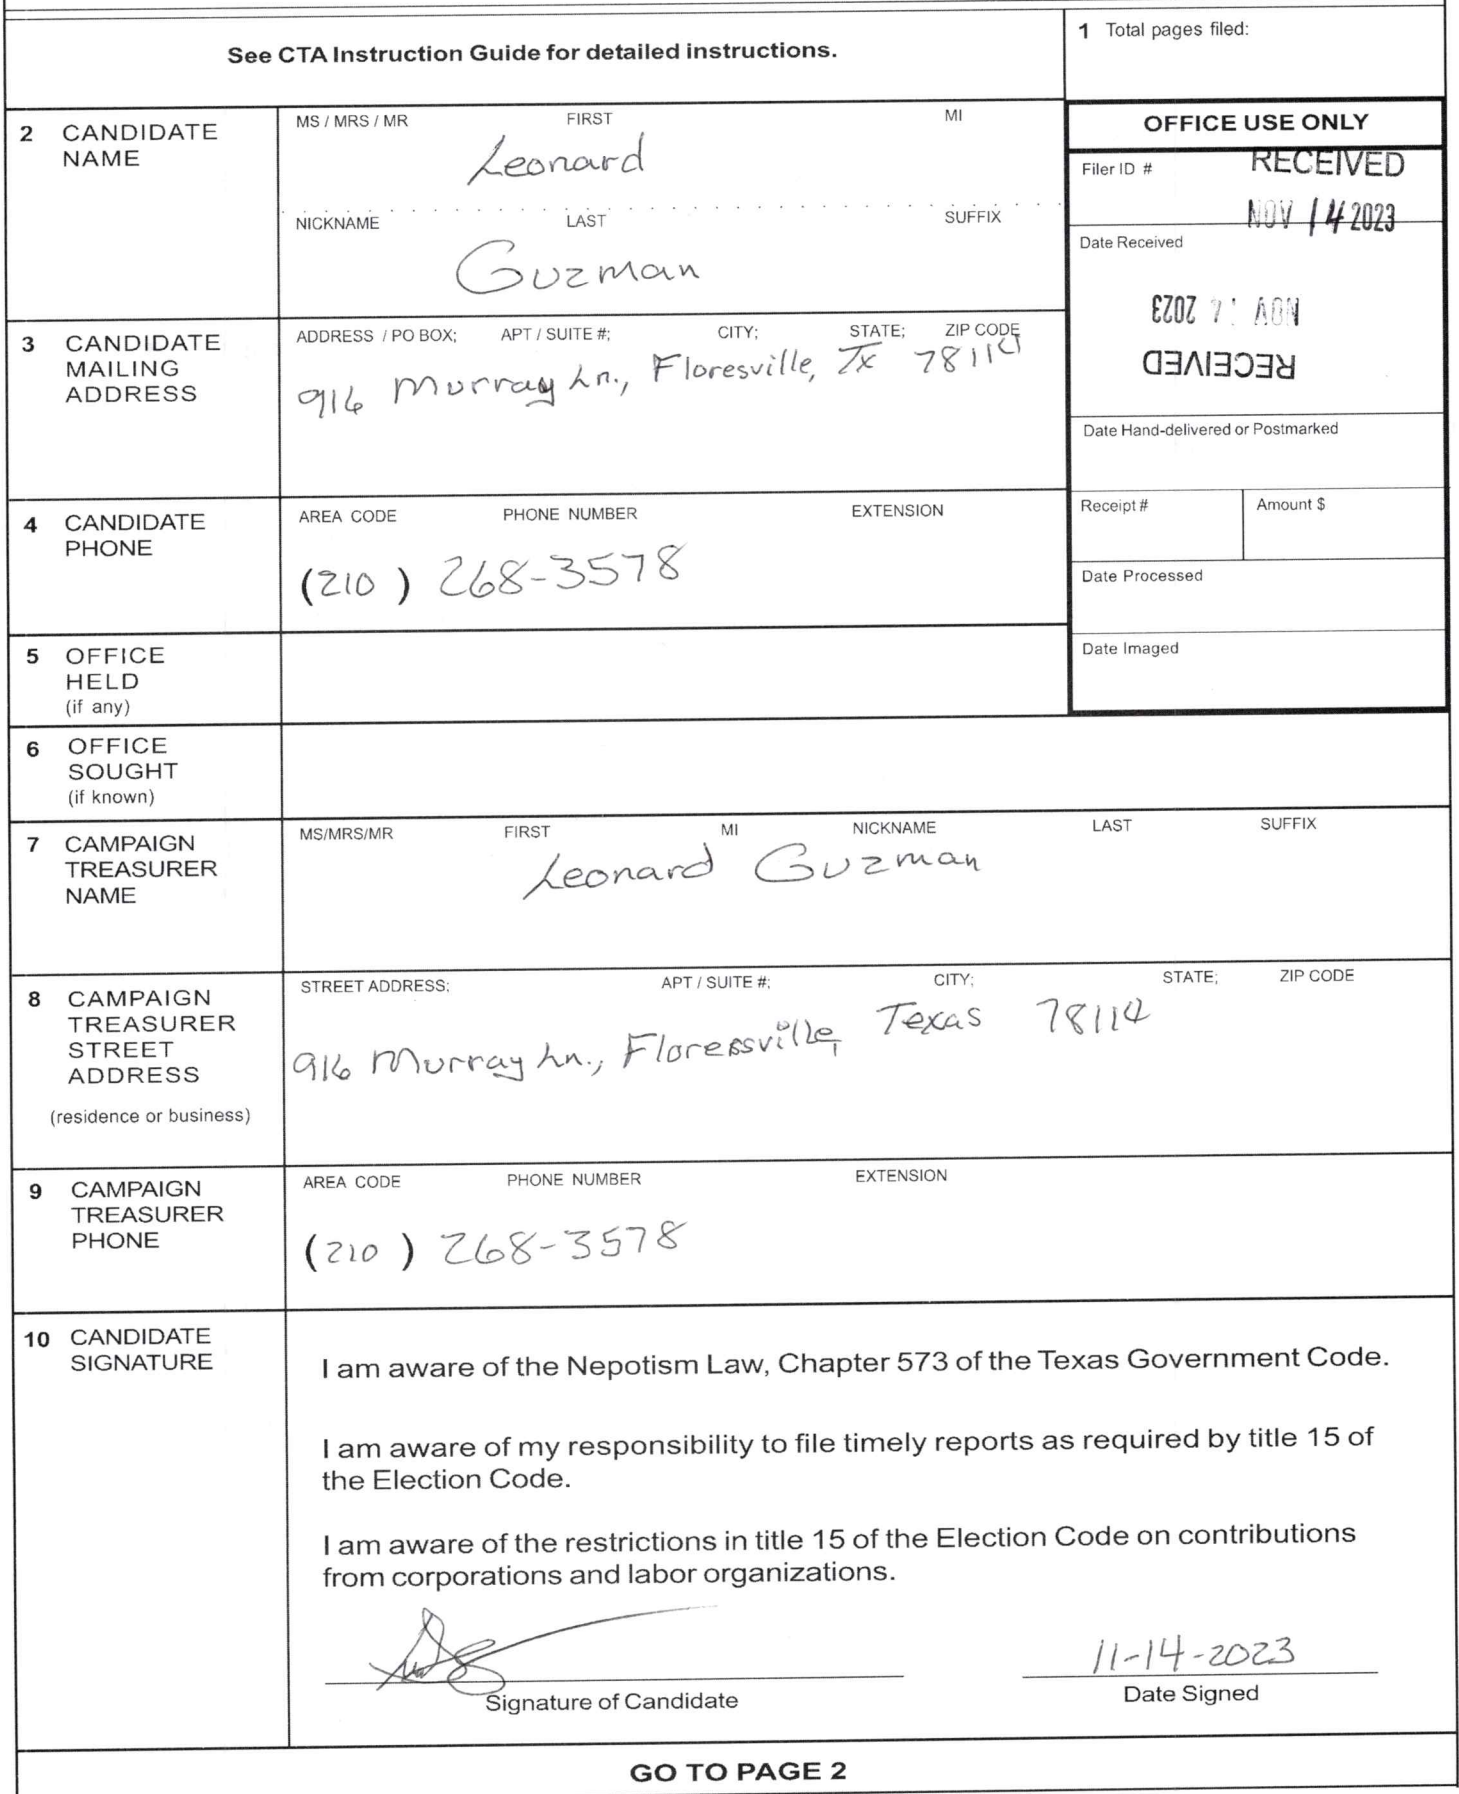 See CTA Instruction Guide for detailed instructions.
1 Total pages filed:
2 CANDIDATE NAME
MS / MRS / MR FIRST MI
Leonard
NICKNAME LAST SUFFIX
Guzman
OFFICE USE ONLY
Filer ID #
RECEIVED
NOV 14 2023
Date Received
NOV 14 2023
RECEIVED
3 CANDIDATE MAILING ADDRESS
ADDRESS / PO BOX; APT / SUITE #; CITY; STATE; ZIP CODE
916 Murray Ln., Floresville, Tx 78114
Date Hand-delivered or Postmarked
4 CANDIDATE PHONE
AREA CODE PHONE NUMBER EXTENSION
(210) 268-3578
Receipt # Amount $
Date Processed
5 OFFICE HELD (if any)
Date Imaged
6 OFFICE SOUGHT (if known)
7 CAMPAIGN TREASURER NAME
MS/MRS/MR FIRST MI NICKNAME LAST SUFFIX
Leonard Guzman
8 CAMPAIGN TREASURER STREET ADDRESS
(residence or business)
STREET ADDRESS; APT / SUITE #; CITY; STATE; ZIP CODE
916 Murray Ln., Floressville, Texas 78114
9 CAMPAIGN TREASURER PHONE
AREA CODE PHONE NUMBER EXTENSION
(210) 268-3578
10 CANDIDATE SIGNATURE
I am aware of the Nepotism Law, Chapter 573 of the Texas Government Code.
I am aware of my responsibility to file timely reports as required by title 15 of
the Election Code.
I am aware of the restrictions in title 15 of the Election Code on contributions
from corporations and labor organizations.
11-14-2023
Signature of Candidate Date Signed
GO TO PAGE 2